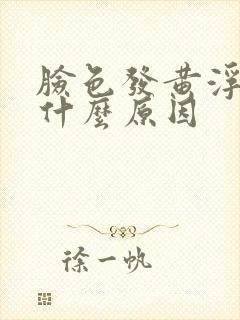 臉色發黃浮
什麼原因
徐一帆